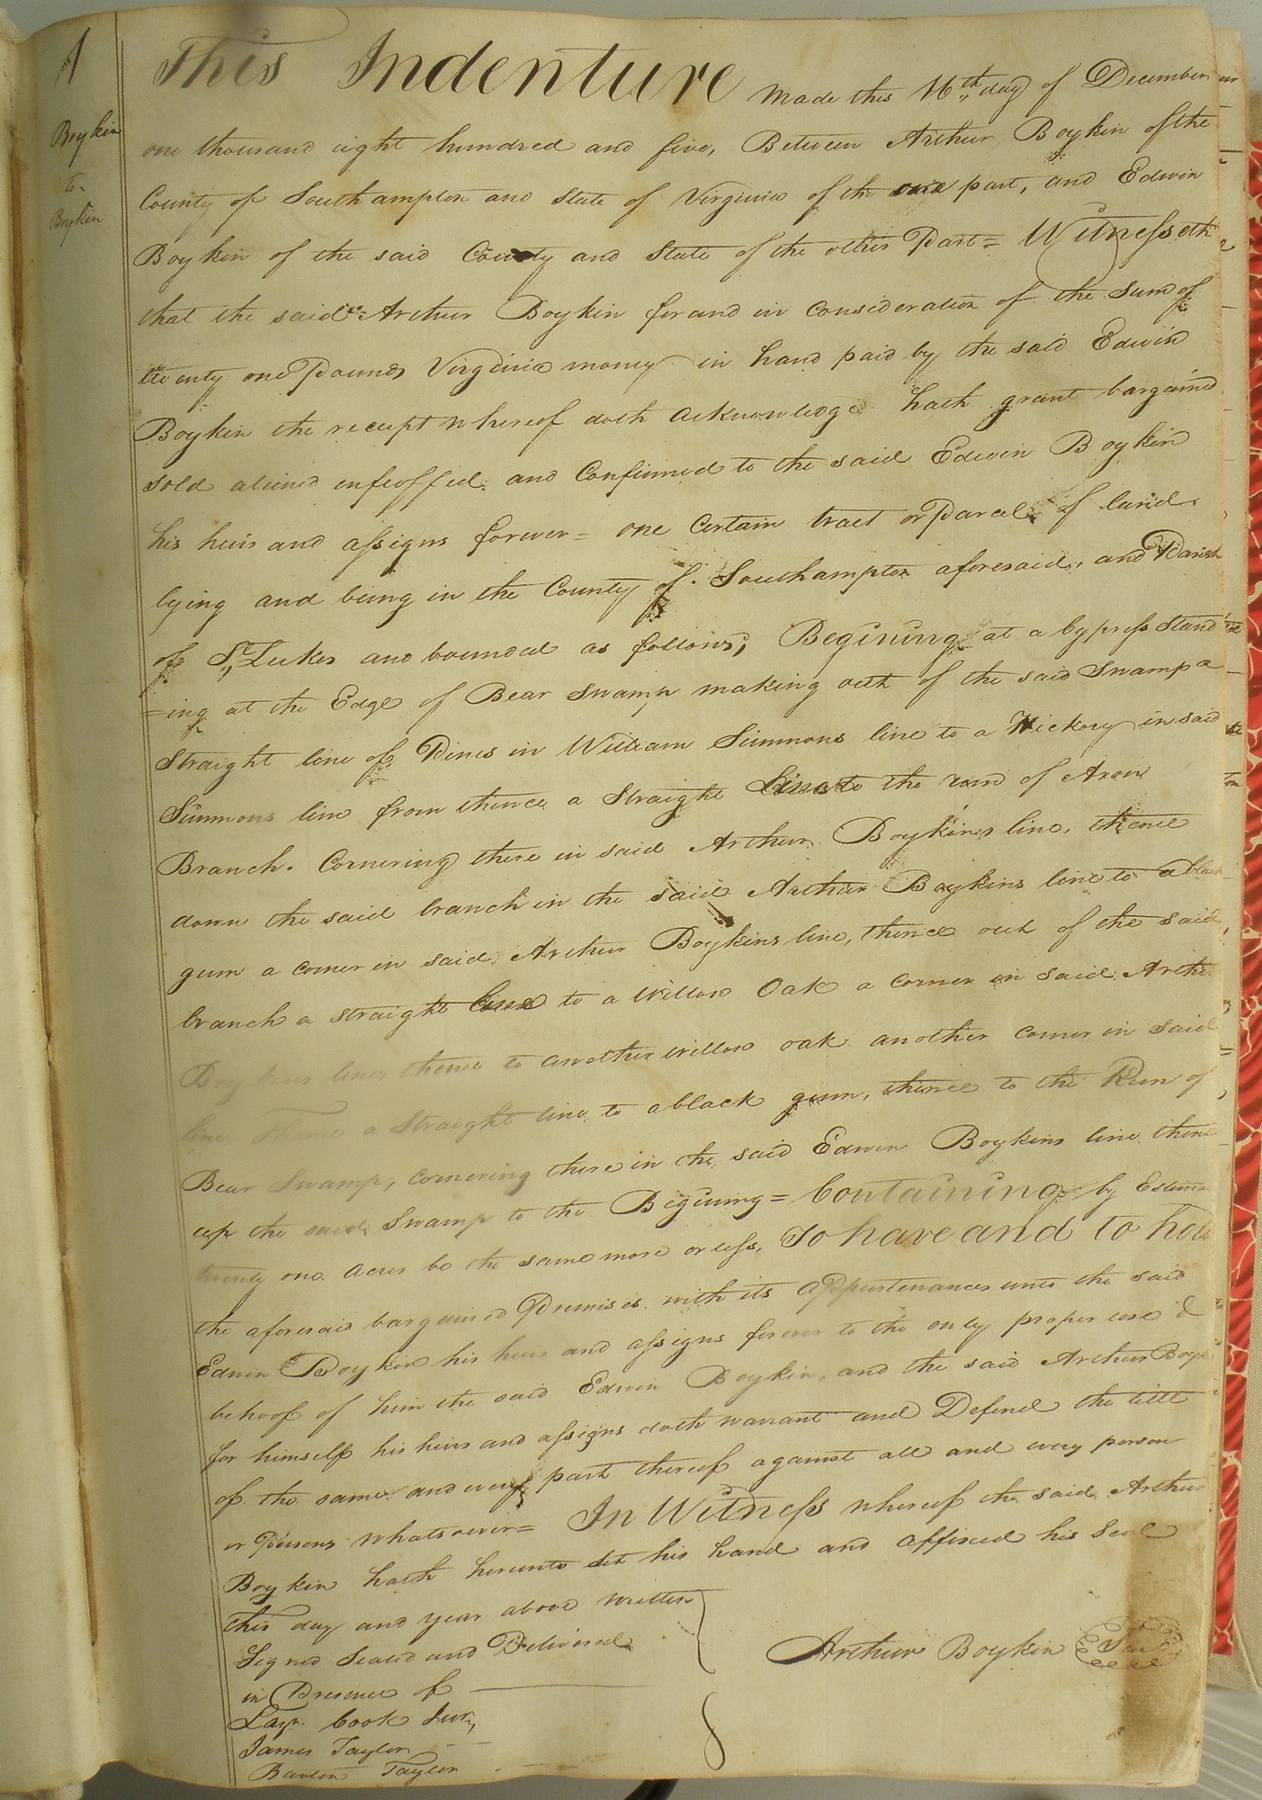 1
Boykin
to
Boykin
This Indenture Made this 16th day of December
one thousand eight hundred and five, Between Arthur Boykin of the
County of Southampton and State of Virginia of the one part, and Edwin
Boykin of the said County and State of the other Part = Witnesseth
that the said Arthur Boykin for and in consideration of the Sum of
twenty one Pounds Virginia money in hand paid by the said Edwin
Boykin the receipt whereof doth acknowledge hath grant bargained
sold aliened enfeoffed and Confirmed to the said Edwin Boykin
his heirs and assigns forever = one certain tract or Parcel of land
lying and being in the County of Southampton aforesaid, and Parish
of St. Lukes and bounded as follows; Begining at a Cypress Stand
=ing at the Edge of Bear Swamp making out of the said Swamp a
Straight line of Pines in William Simmons line to a Hickory in said
Simmons line from thence a Straight Line to the run of Aron
Branch. Cornering there in said Arthur Boykins line, thence
down the said branch in the said Arthur Boykins line to a black
gum a corner in said Arthur Boykins line, thence out of the said
branch a straight line to a Willow Oak a corner in said Arthur
Boykins line thence to another willow oak another corner in said
line thence a Straight line to a black gum, thence to the Run of
Bear Swamp, cornering there in the said Edwin Boykins line thence
up the said Swamp to the Begining = Containing by Estima
twenty one acres be the same more or less, To have and to hold
the aforesaid bargained Premises with its appurtenances unto the said
Edwin Boykin his heirs and assigns forever to the only proper use &
behoof of him the said Edwin Boykin, and the said Arthur Boykin
for himself his heirs and assigns doth warrant and Defend the title
of the same and every part thereof against all and every person
or Persons whatsoever = In Witness whereof the said Arthur
Boykin hath hereunto Set his hand and affixed his Seal
this day and year above written
Signed Sealed and Delivered
in Presence of
Arthur Boykin Seal
Cook Junr,
James Taylor
Taylor